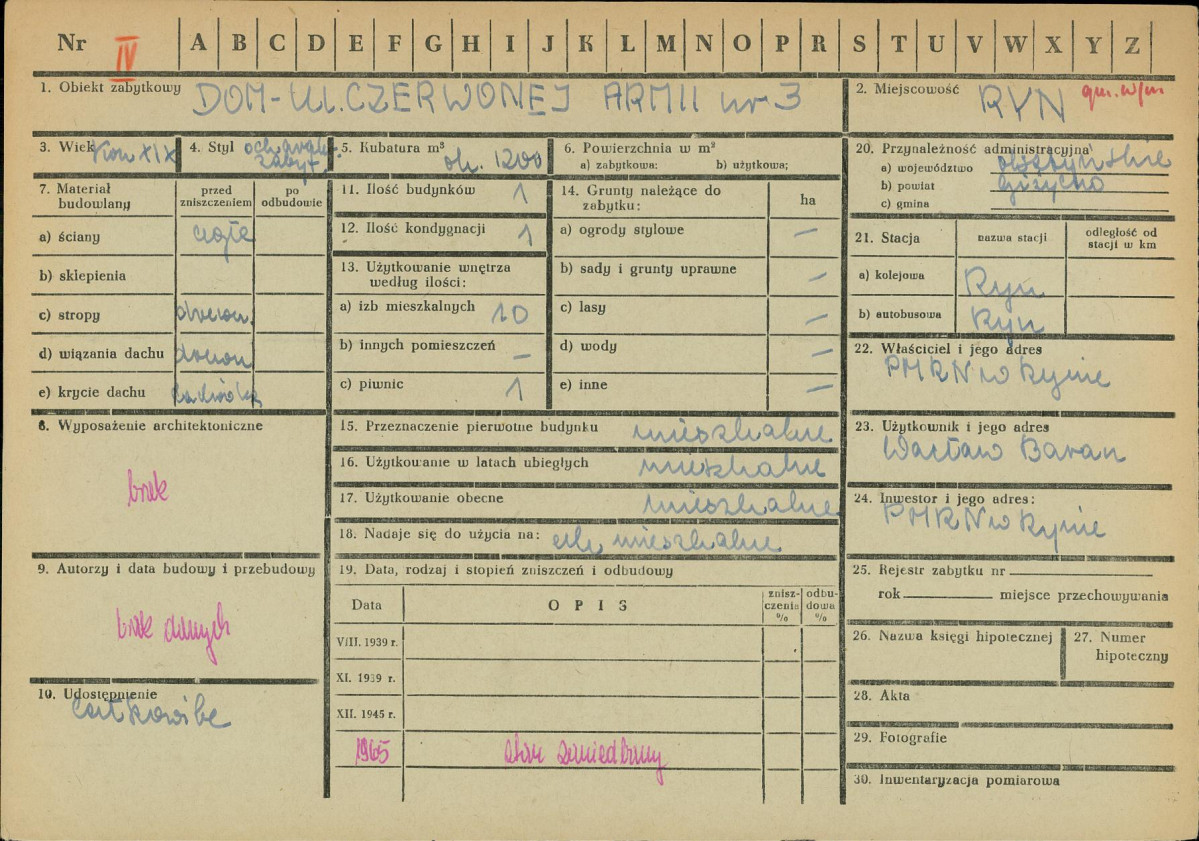 Nr IV A B C D E F G H I J K L M N O P R S T U V W X Y Z
1. Obiekt zabytkowy DOM-UL.CZERWONEJ ARMII nr 3
2. Miejscowość RYN
3. Wiek kon XIX
4. Styl
5. Kubatura m³ ok. 1200
6. Powierzchnia w m²
a) zabytkowa: b) użytkowa;
7. Materiał budowlany
przed zniszczeniem
po odbudowie
a) ściany cegła
b) sklepienia
c) stropy drewn.
d) wiązania dachu drewn
e) krycie dachu dachówka
8. Wyposażenie architektoniczne
brak
9. Autorzy i data budowy i przebudowy
brak danych
10. Udostępnienie
całkowite
11. Ilość budynków 1
12. Ilość kondygnacji 1
13. Użytkowanie wnętrza
według ilości:
a) izb mieszkalnych 10
b) innych pomieszczeń –
c) piwnic 1
14. Grunty należące do
zabytku:
ha
a) ogrody stylowe –
b) sady i grunty uprawne –
c) lasy –
d) wody –
e) inne –
15. Przeznaczenie pierwotne budynku mieszkalne
16. Użytkowanie w latach ubiegłych mieszkalne
17. Użytkowanie obecne mieszkalne
18. Nadaje się do użycia na: cele mieszkalne
19. Data, rodzaj i stopień zniszczeń i odbudowy
Data
O P I S
znisz-
czenia
%
odbu-
dowa
%
VIII. 1939 r.
XI. 1939 r.
XII. 1945 r.
1965 stan
20. Przynależność administracyjna
a) województwo olsztyńskie
b) powiat Giżycko
c) gmina
21. Stacja
nazwa stacji
odległość od
stacji w km
a) kolejowa Ryn
b) autobusowa Ryn
22. Właściciel i jego adres
PMRN w Rynie
23. Użytkownik i jego adres
Wacław Baran
24. Inwestor i jego adres:
PMRN w Rynie
25. Rejestr zabytku nr
rok miejsce przechowywania
26. Nazwa księgi hipotecznej
27. Numer
hipoteczny
28. Akta
29. Fotografie
30. Inwentaryzacja pomiarowa